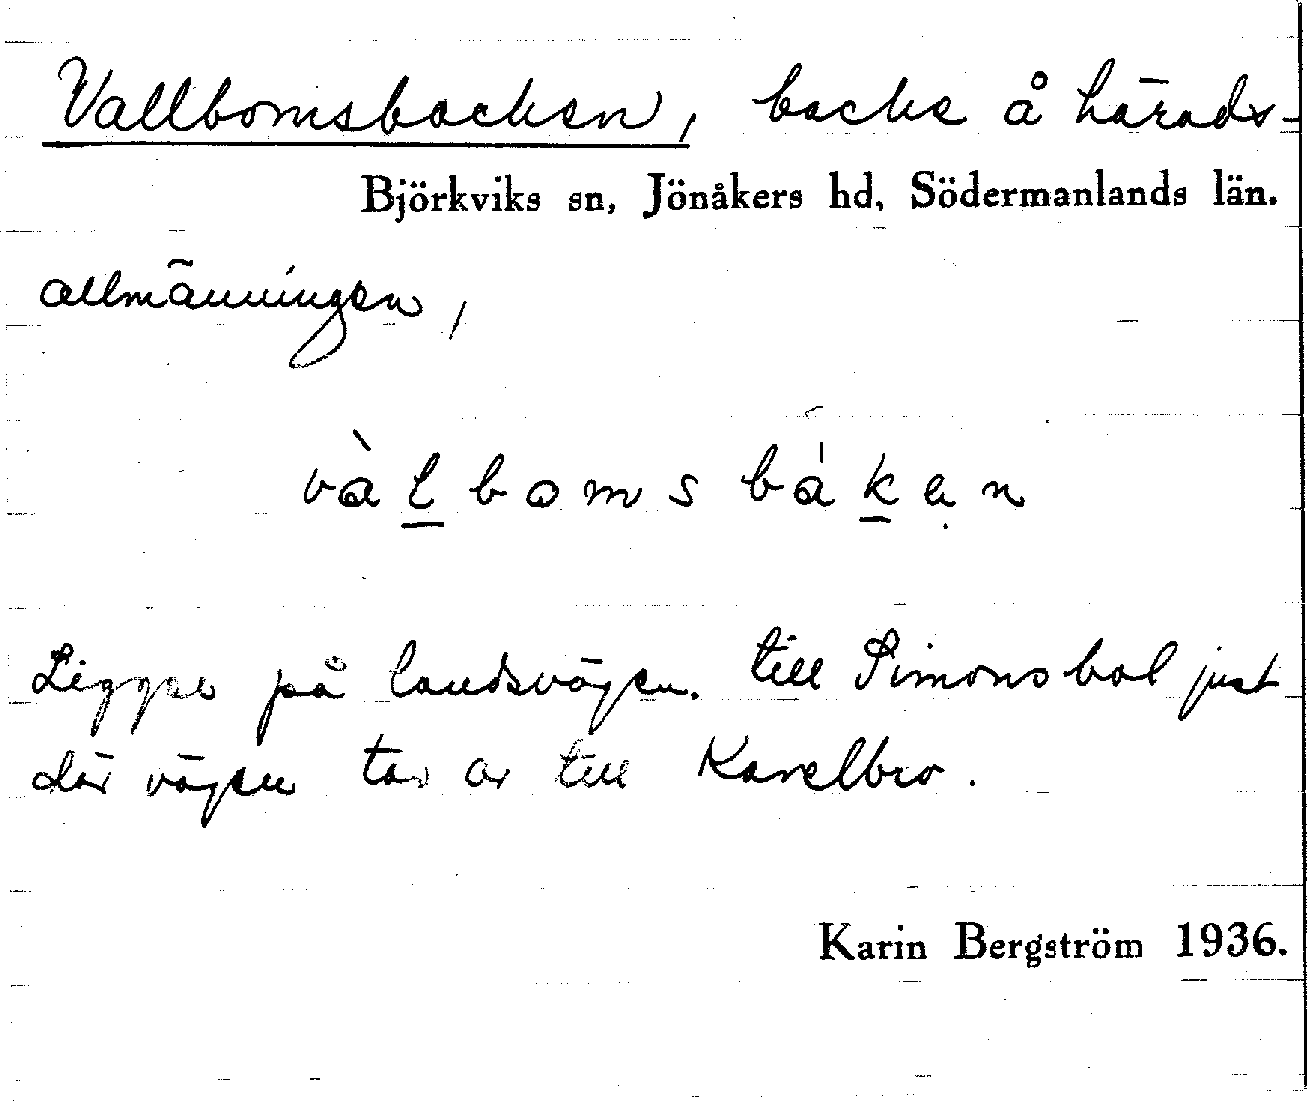 Vallbomsbacken, backe å härads-
Björkviks sn, Jönåkers hd, Södermanlands län.
allmänningen,
vàl̲bomsbák̲ạn
Ligger på landsvägen. till Simonsbol just
där vägen tar av till Kavelbro.
Karin Bergström 1936.